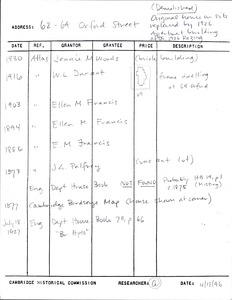 (Demolished)
Original house on site
replaced by 1926
apartment building
ADDRESS: 62-64 Oxford Street
DATE REF. GRANTOR GRANTEE PRICE DESCRIPTION
1930 Atlas Jennie M Woods (brick building)
1916 " W.L. frame dwelling
at 64 Oxford
1903 " Ellen M. Francis
1894 " Ellen M Francis
1886 " E M Francis
1873 " J.G. Palfrey (vacant lot)
Eng. Dept House Book NOT FOUND Probably
1877 Cambridge Birdseye Map (house shown at corner)
July 18 1927 Eng Dept House Book 79, p 66
CAMBRIDGE HISTORICAL COMMISSION RESEARCHER: DATE: